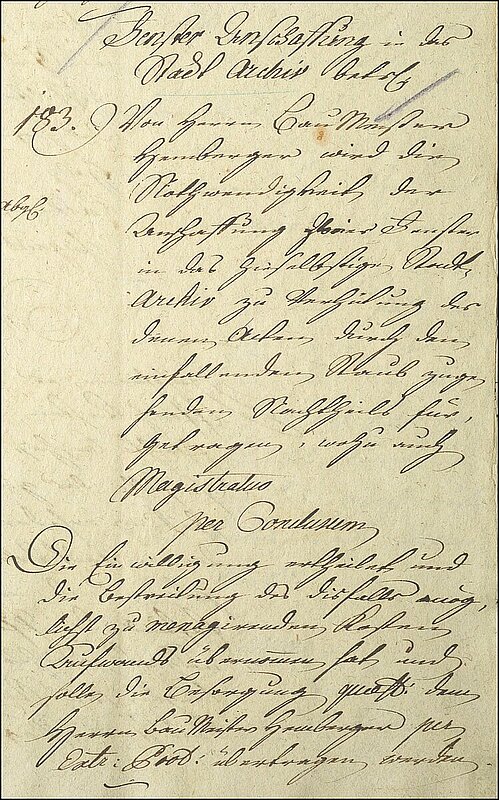 Fenster Anschaffung in das
Stadt Archiv betr.
183.) Von Herrn Bau Meister
Hemberger wird die
Nothwendigkeit der
Anschaffung zweier Fenster
in das hieselbstige Stadt-
Archiv zu Verhütung des
denen Acten durch den
einfallenden Staub zuge
henden Nachtheils für,
getragen, wozu auch
Magistratus
per Conclusum
Die Einwilligung ertheilet und
die Bestreitung des disfalls mög,
lichst zu menagirenden Kosten
Aufwands übernommen hat und
solle die Besorgung dem
Herrn Bau Meister Hemberger per
Extr: Prot: übertragen werden.